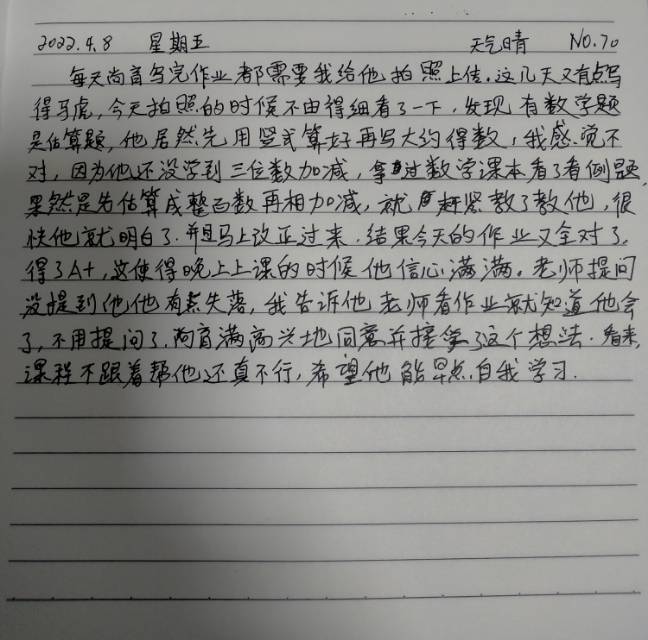 2022.4.8 星期五 天气晴 NO.70
每天尚育写完作业都需要我给他拍照上传。这几天又有点写
得马虎,今天拍照的时候不由得细看了一下,发现有数学题
是估算题,他居然先用竖式算好再写大约得数,我感觉不
对,因为他还没学到三位数加减,拿过数学课本看了看例题,
果然是先估算成整百数再相加减,就赶紧教了教他,很
快他就明白了.并且马上改正过来.结果今天的作业又全对了.
得了A+,这使得晚上上课的时候他信心满满。老师提问
没提到他他有点失落,我告诉他老师看作业就知道他会
了,不用提问了.尚育满高兴地同意并接拿了这个想法.看来,
课程不跟着帮他还真不行,希望他能早点自我学习.